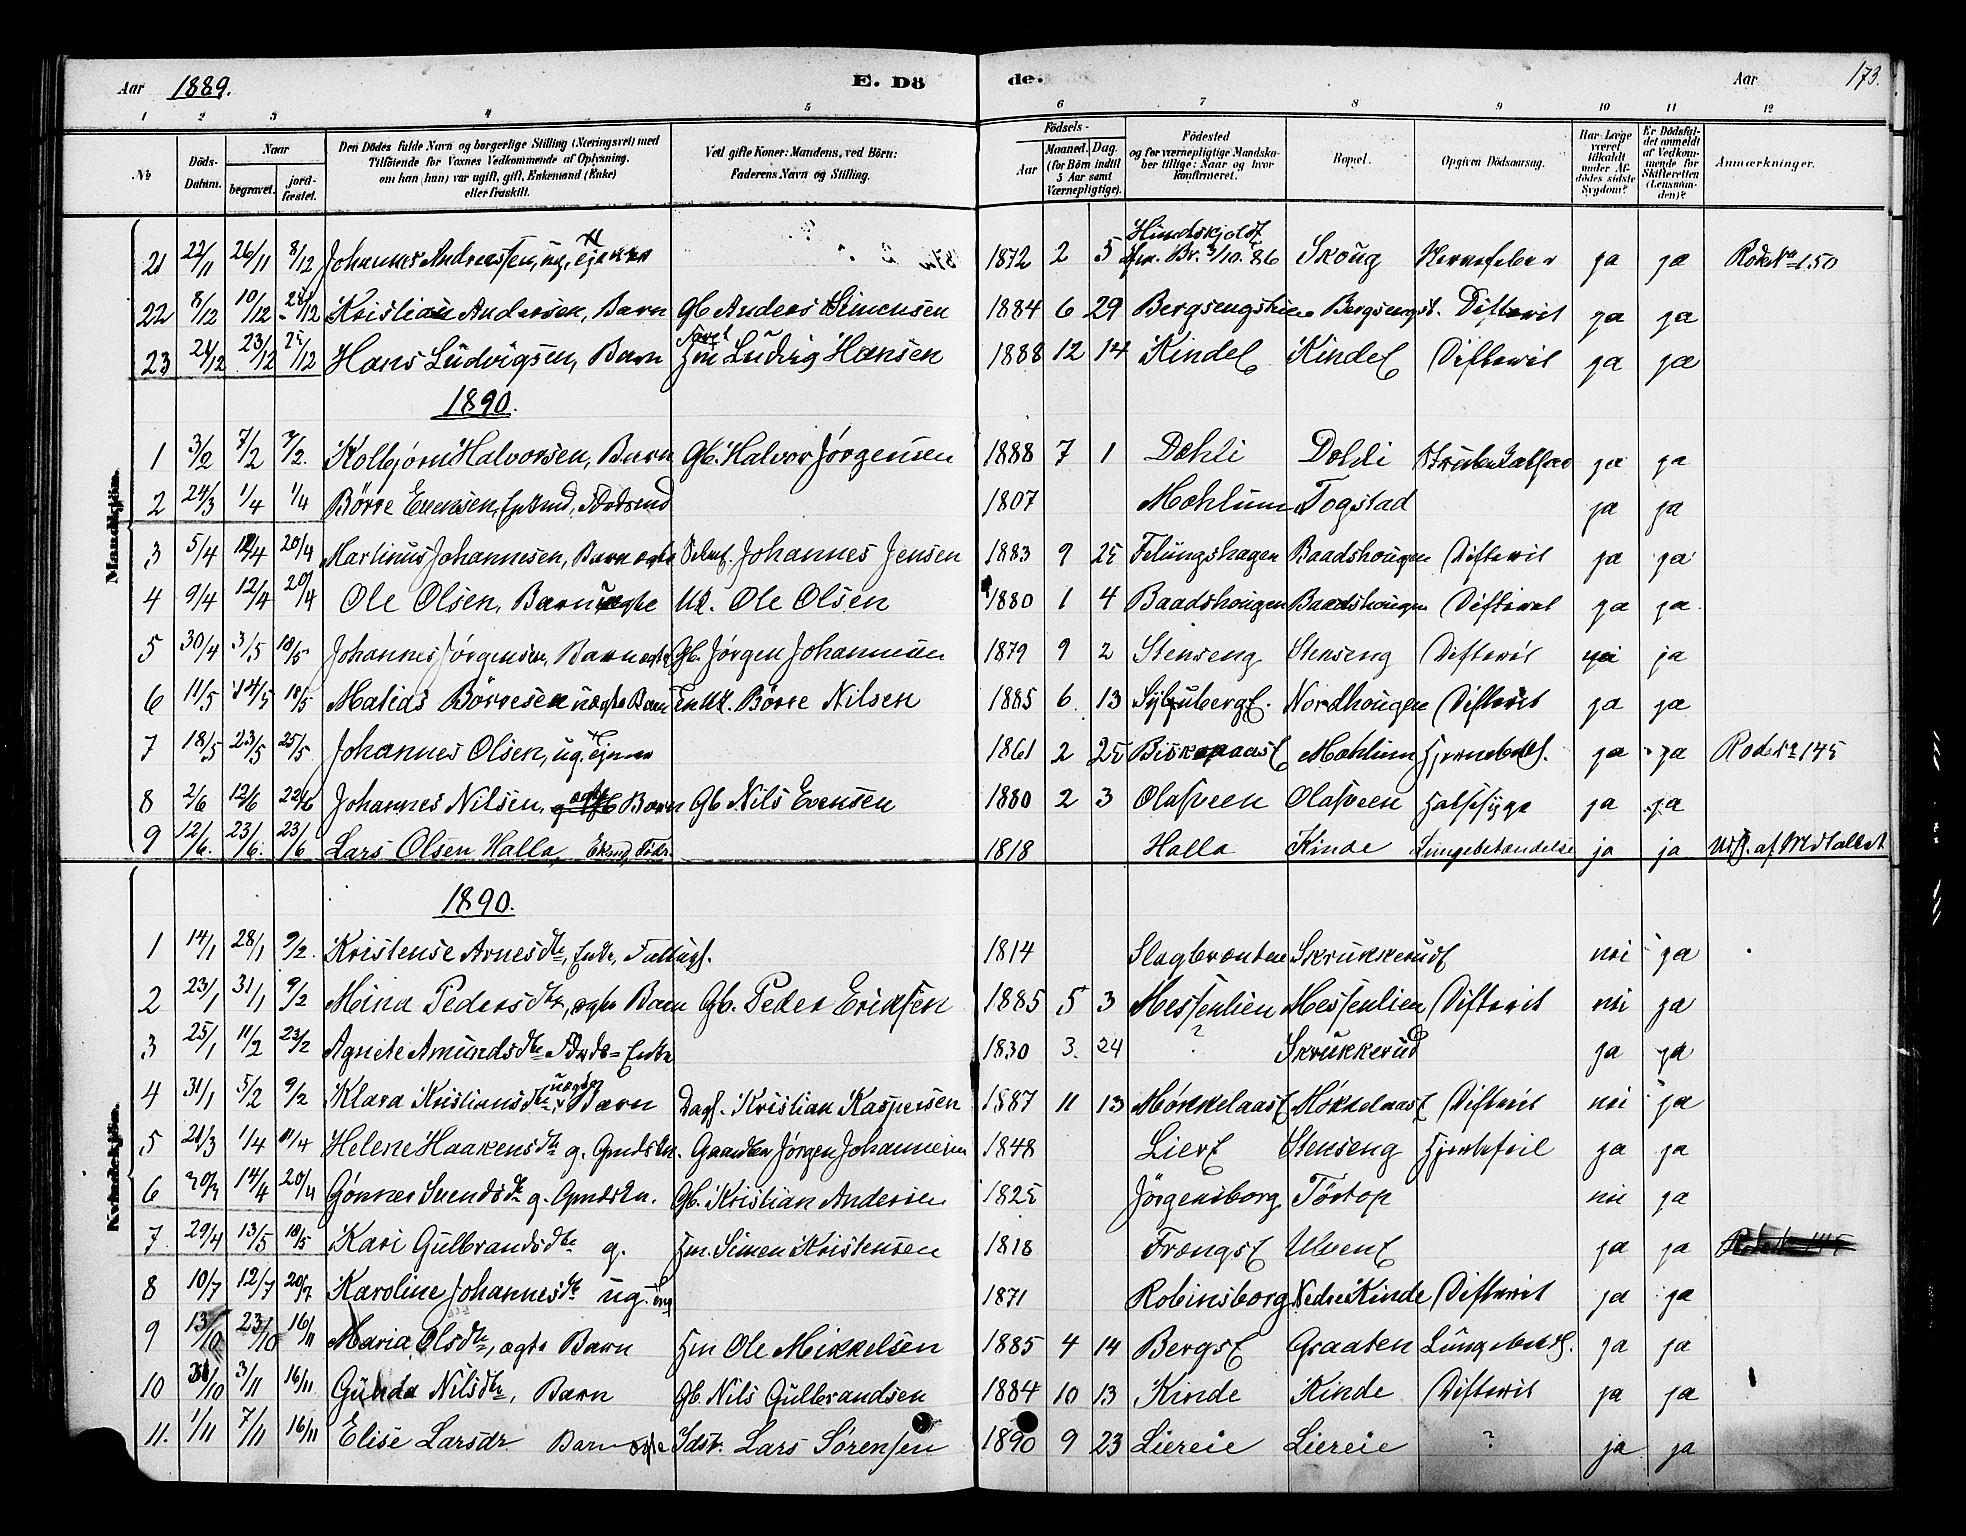 Aar 1889. E. Dö de. Aar 173.
1 2 3 4 5 6 7 8 9 10 11 12
No
Döds-Datum.
Naar
begravet.
jord-fæstet.
Den Dödes fulde Navn og borgerlige Stilling (Næringsvei) med
Tilföiende for Voxnes Vedkommende af Oplysning.
om han (hun) var ugift, gift, Enkemand (Enke)
eller fraskilt.
Ved gifte Koner: Mandens, ved Börn:
Faderens Navn og Stilling.
Födsels-
Aar
Maaned. Dag.
(for Börn indtil
5 Aar samt
Værnepligtige).
Födested
og for værnepligtige Mandska-
ber tillige: Naar og hvor
konfirmeret.
Bopæl.
Opgiven Dödsaarsag.
Har Læge
været
tilkaldt
under Af-
dödes sidste
Sygdom?
Er Dödsfal-
det anmeldt
af Vedkom-
mende for
Skifteretten
(Lensman-
den)?
Anmærkninger.
Mandkjön.
21 22/11 26/11 8/12 Johannes Andreassen, ug. 1872 2 5 Br. 3/10 86 Skoug ja ja Rode No 150
22 8/12 10/12 /12 Kristian Andersen, Barn Gb Anders Simensen 1884 6 29 Difterit ja ja
23 21/12 23/12 /12 Hans Ludvigsen, Barn Ludvig Hansen 1888 12 14 Kinde Kinde Difterit ja ja
1890.
1 3/2 7/2 9/2. Kolbjørn Halvorsen, Barn Gb. Halvor Jørgensen 1888 7 1 Dehli Dehli ja ja
2 24/3 1/4 1/4 Börre Evensen, 1807 Mæhlum Togstad ja ja
3 5/4 /4 20/4 Martinus Johannesen, Barn ægte Johannes Jensen 1883 9 25 Felungshagen Baadshougen Difterit ja ja
4 9/4 12/4 20/4 Ole Olsen, Barn uægte Uk. Ole Olsen 1880 1 4 Baadshougen Baadshougen Difterit ja ja
5 30/4 3/5 18/5 Johannes Jørgensen, Barn ægte Gb. Jørgen Johannesen 1879 9 2 Stenseng Stenseng Difterit ja
6 11/5 14/5 18/5 Matias Börresen uægte Barn Börre Nilsen 1885 6 13 Nordhougen Difterit ja ja
7 18/5 23/5 25/5 Johannes Olsen, ug. 1861 2 25 Mæhlum ja ja Rode No 145
8 2/6 12/6 22/6 Johannes Nilsen, ægte Barn Gb Nils Evensen 1880 2 3 Olasveen Olasveen Halssyge ja ja
9 12/6. 23/6. 23/6 Lars Olsen Halla, 1818 Halla Kinde Lungebetændelse ja ja
Kvindekjön.
1890.
1 14/1 28/1 9/2. Kristense Arnesdtr, Enke, 1814 Slagbrænden Skrukkerud nei ja
2 23/1 31/1 9/2 Mina Pedersdtr, ægte Barn Gb. Peder Eriksen 1885 5 3 Messenlien Messenlien Difterit nei ja
3 25/1 11/2 23/2 Agnete Amundsdtr Enke 1830 3. 24 ? Skrukkerud ja ja
4 31/1 5/2 9/2 Klara Kristiansdtr, uægte Barn Dagl. Kristian Kaspersen 1887 11 13 Difterit nei ja
5 21/3 1/4 11/4 Helene Haakensdtr g. Jørgen Johannesen 1848 Stenseng Hjertefeil ja ja
6 14/4 20/4 Svendsdtr g. Gb. Kristian Andersen 1825 Jörgensborg Törtop nei ja
7 29/4 13/5 18/5 Kari Gulbrandsdtr g. Hm. Simen Kristensen 1818 ja ja
8 10/7 12/7 20/7 Karoline Johannesdtr ug. 1871 Robinsborg Nedre Kinde Difterit ja ja
9 13/10 23/10 16/11 Maria Olsdtr, ægte Barn Hm Ole Mikkelsen 1885 4 14 Graaten ja ja
10 31/10 3/11 16/11 Gunda Nilsdtr, Barn Gb. Nils Gulbrandsen 1884 10 13 Kinde Kinde Difterit ja ja
11. 1/11 7/11 16/11 Elise Larsdr Barn ægte Lars Sörensen 1890 9 23 Liereie Liereie ? ja ja